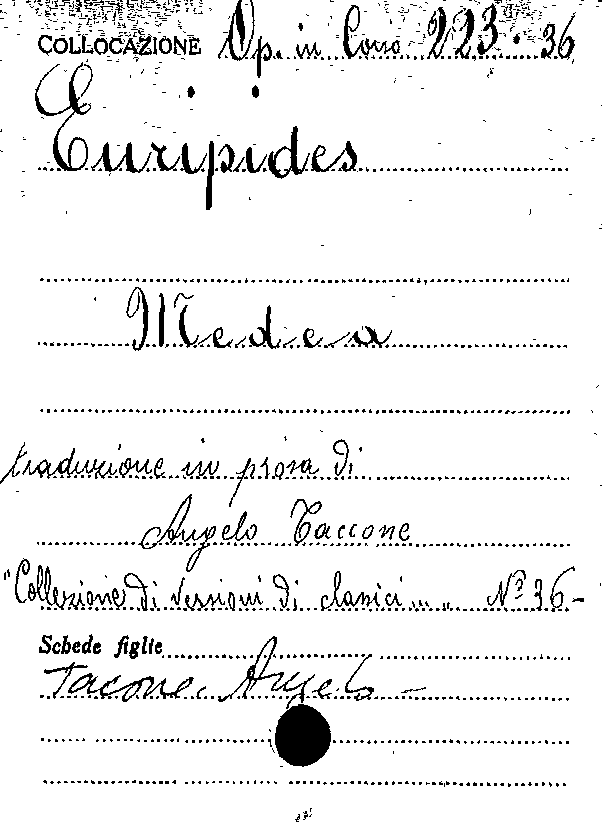 COLLOCAZIONE Op. in Corso 223.36
Euripides
Medea
traduzione in prosa di
Angelo Taccone
"Collezione di versioni di classici..." Nº 36-
Schede figlie
Tacone Angelo -